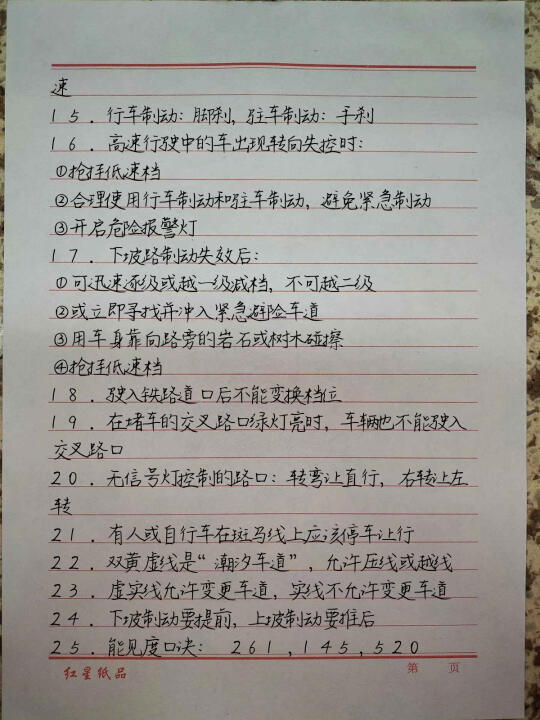 速
15．行车制动：脚刹，驻车制动：手刹
16．高速行驶中的车出现转向失控时：
①抢挂低速档
②合理使用行车制动和驻车制动，避免紧急制动
③开启危险报警灯
17．下坡路制动失效后：
①可迅速逐级或越一级减档，不可越二级
②或立即寻找并冲入紧急避险车道
③用车身靠向路旁的岩石或树木碰擦
④抢挂低速档
18．驶入铁路道口后不能变换档位
19．在堵车的交叉路口绿灯亮时，车辆也不能驶入
交叉路口
20．无信号灯控制的路口：转弯让直行，右转让左
转
21．有人或自行车在斑马线上应该停车让行
22．双黄虚线是“潮汐车道”，允许压线或越线
23．虚实线允许变更车道，实线不允许变更车道
24．下坡制动要提前，上坡制动要推后
25．能见度口诀：261，145，520
红星纸品 第 页